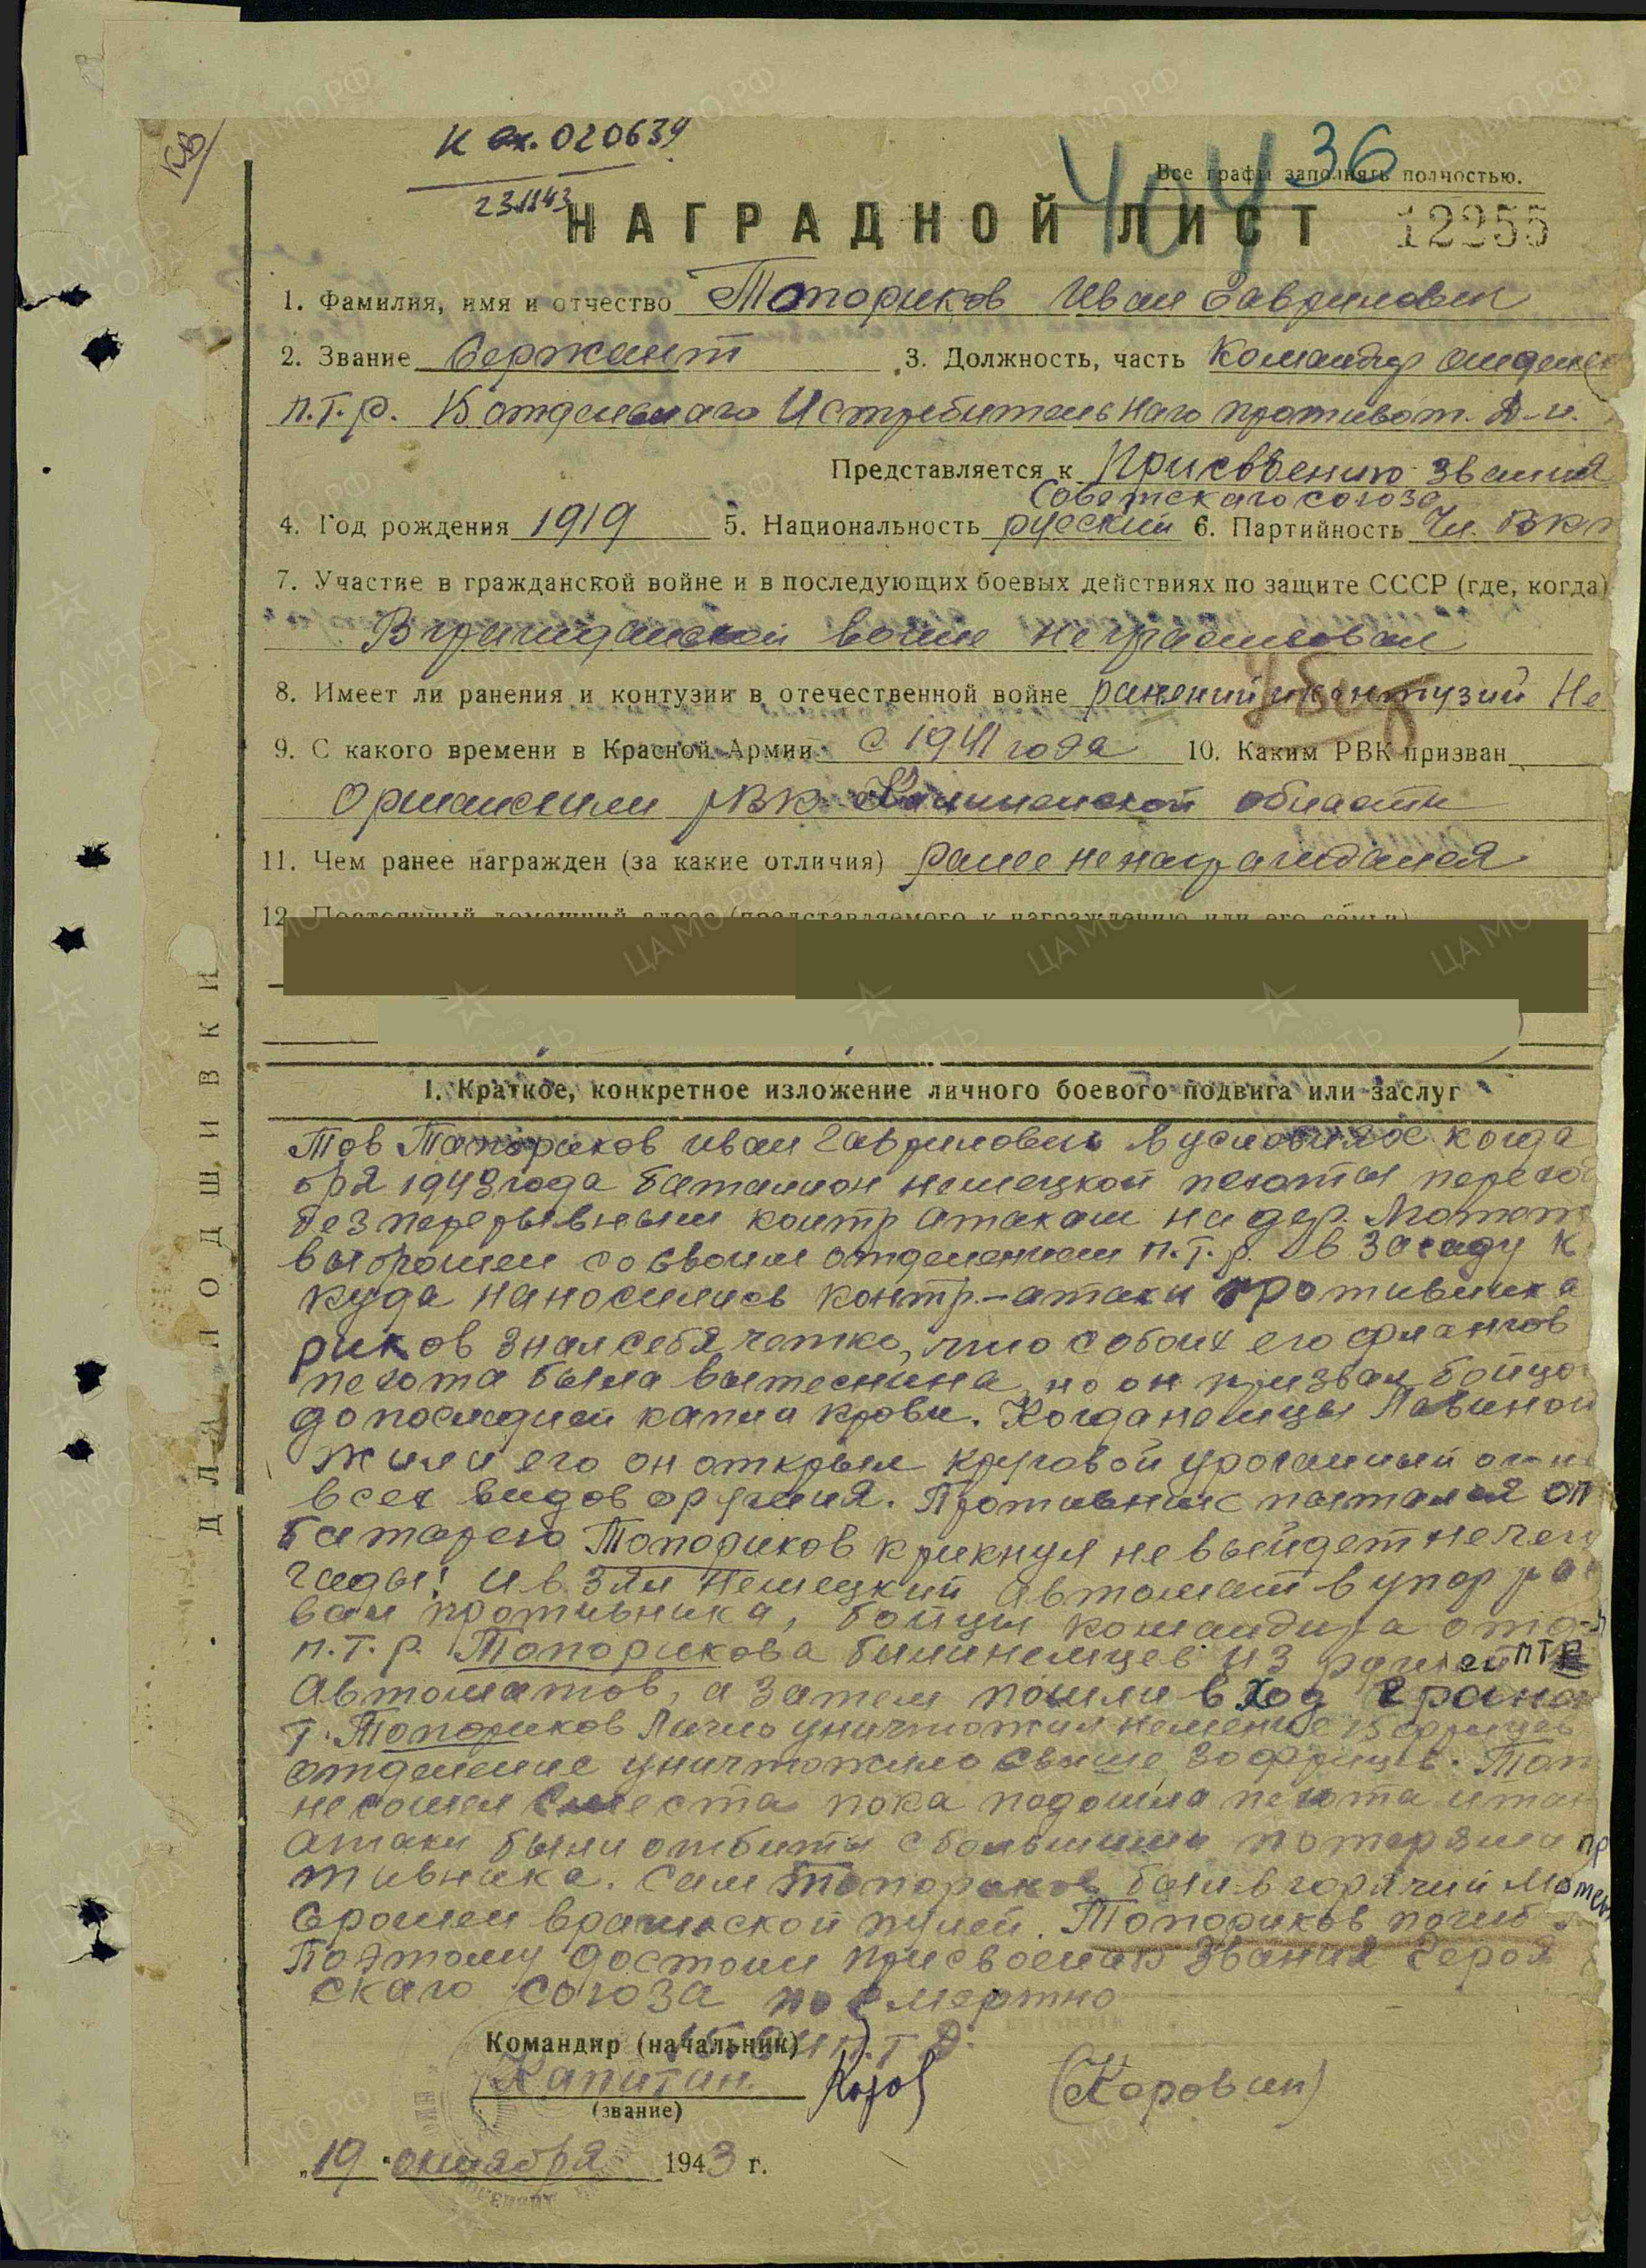 К вх. 020639
23.11.43
404 36
Все графы заполнять полностью.
НАГРАДНОЙ ЛИСТ 12255
1. Фамилия, имя и отчество Топориков Иван Гаврилович
2. Звание Сержант 3. Должность, часть Командир отделен
п.т.р. 15 отдельнаго Истребительнаго противот. д-н.
Представляется к присвоению звания
Советскаго союза
4. Год рождения 1919 5. Национальность русский 6. Партийность Чл. ВКП
7. Участие в гражданской войне и в последующих боевых действиях по защите СССР (где, когда)
В гражданской войне не участвовал
8. Имеет ли ранения и контузии в отечественной войне ранений и контузий не
Убит
9. С какого времени в Красной Армии с 1941 года 10. Каким РВК призван
РВК Калининской области
11. Чем ранее награжден (за какие отличия) ранее не награждался
12. Постоянный домашний адрес (представляемого к награждению или его семьи)
ДЛЯ ПОДШИВКИ
1. Краткое, конкретное изложение личного боевого подвига или заслуг
Тов Топориков Иван Гаврилович в условиях когда
бря 1943 года батальон немецкой пехоты перехо
безперерывным контр атакам на дер.
выброшен со своим отделением п.т.р. в засаду к
куда наносились контр-атаки противника
риков знал себя четко, что с обоих его флангов
пехота была вытеснина, но он призвал бойцо
до последней капли крови. Когда немцы лавиной
жили его он открыл круговой ураганный огн
всех видов оружия. Противник пытался оп
батарею Топориков крикнул не выйдет нечего
гады! И взял немецкий автомат в упор рас
вал противника, бойцы командира отд-я
п.т.р. Топорикова били немцев из ружей ПТР
автоматов, а затем пошли в ход грана
т. Топориков лично уничтожил не менее 15 фрицев
отделение уничтожило свыше 30 фрицев. Топ
не сошел с места пока подошла пехота и
атаки были отбиты с большими потерями про
тивника. Сам Топориков был в горячий момент
сражен вражеской пулей. Топориков погиб
Поэтому достоин присвоения звания Героя
скаго союза посмертно
Командир (начальник) 15 ОИПТД.
Капитан
(Коровин)
(звание)
„19“ октября 1943 г.
ЦА МО РФ
ПАМЯТЬ НАРОДА